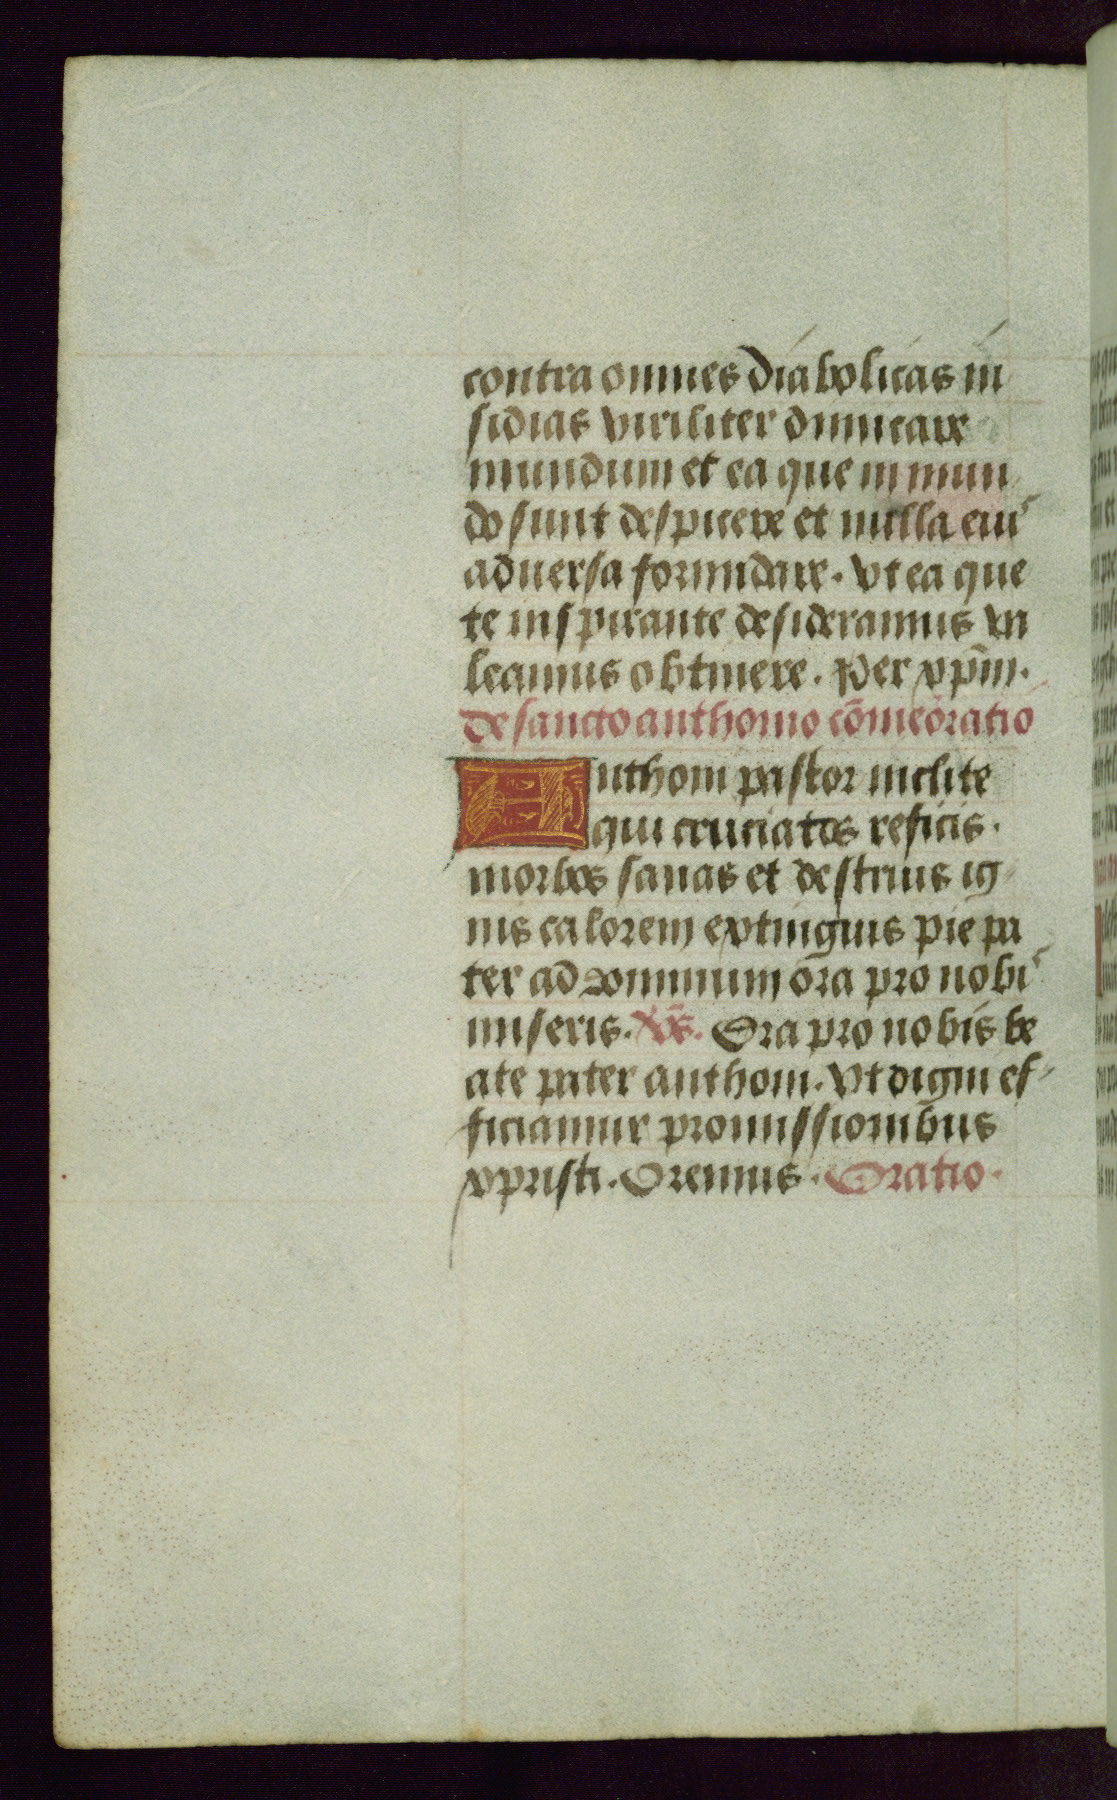 contra omnes diabolicas in
sidias viriliter dimicare
mundum et ea que in mun
do sunt despicere et nulla eiuˢ
aduersa formidare. vt ea que
te inspirante desideramus va
leamus obtinere. Per xp̄m.
de sancto anthonio cōmeōratio
Anthoni pastor inclite
qui cruciatos reficis.
morbos sanas et destruis ig
nis calorem extinguis pie pa
ter ad dominum ora pro nobiˢ
miseris. V̄s. Ora pro nobis be
ate pater anthoni. Vt digni ef
ficiamur promissionibus
xpristi. Oremus. Oratio.